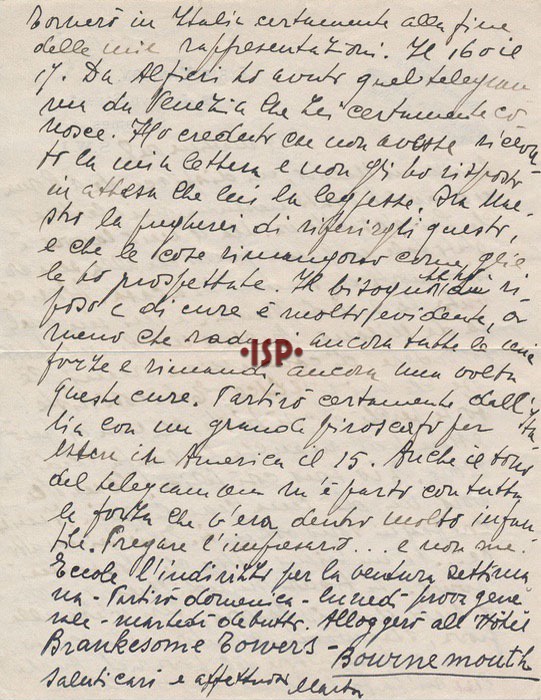 Tornerò in Italia certamente alla fine
delle mie rappresentazioni. Il 16 o il
17. Da Alfieri ho avuto quel telegram
ma da Venezia che Lei certamente co
nosce. Ho creduto che non avesse ricevu-
to la mia lettera e non gli ho risposto
in attesa che lui la leggesse. Ma Mae-
stro la pregherei di riferirgli questo,
e che le cose rimangono come glie
le ho prospettate. Il bisogno di ri
poso e di cure è molto evidente, a
meno che radu i ancora tutte le mie
·ISP·
forze e rimandi ancora una volta
queste cure. Partirò certamente dall'Ita
lia con un grande piroscafo per
essere in America il 15. Anche il tono
del telegramma m'è parso con tutta
la forza che v'era dentro molto infan
tile. Pregare l'impresario... e non me!
Eccole l'indirizzo per la ventura settima
na - Partirò domenica - lunedì prova gene
rale - martedì debutto. Alloggerò all'Hôtel
Brankesome Towers - Bournemouth
Saluti cari e affettuosi Marta